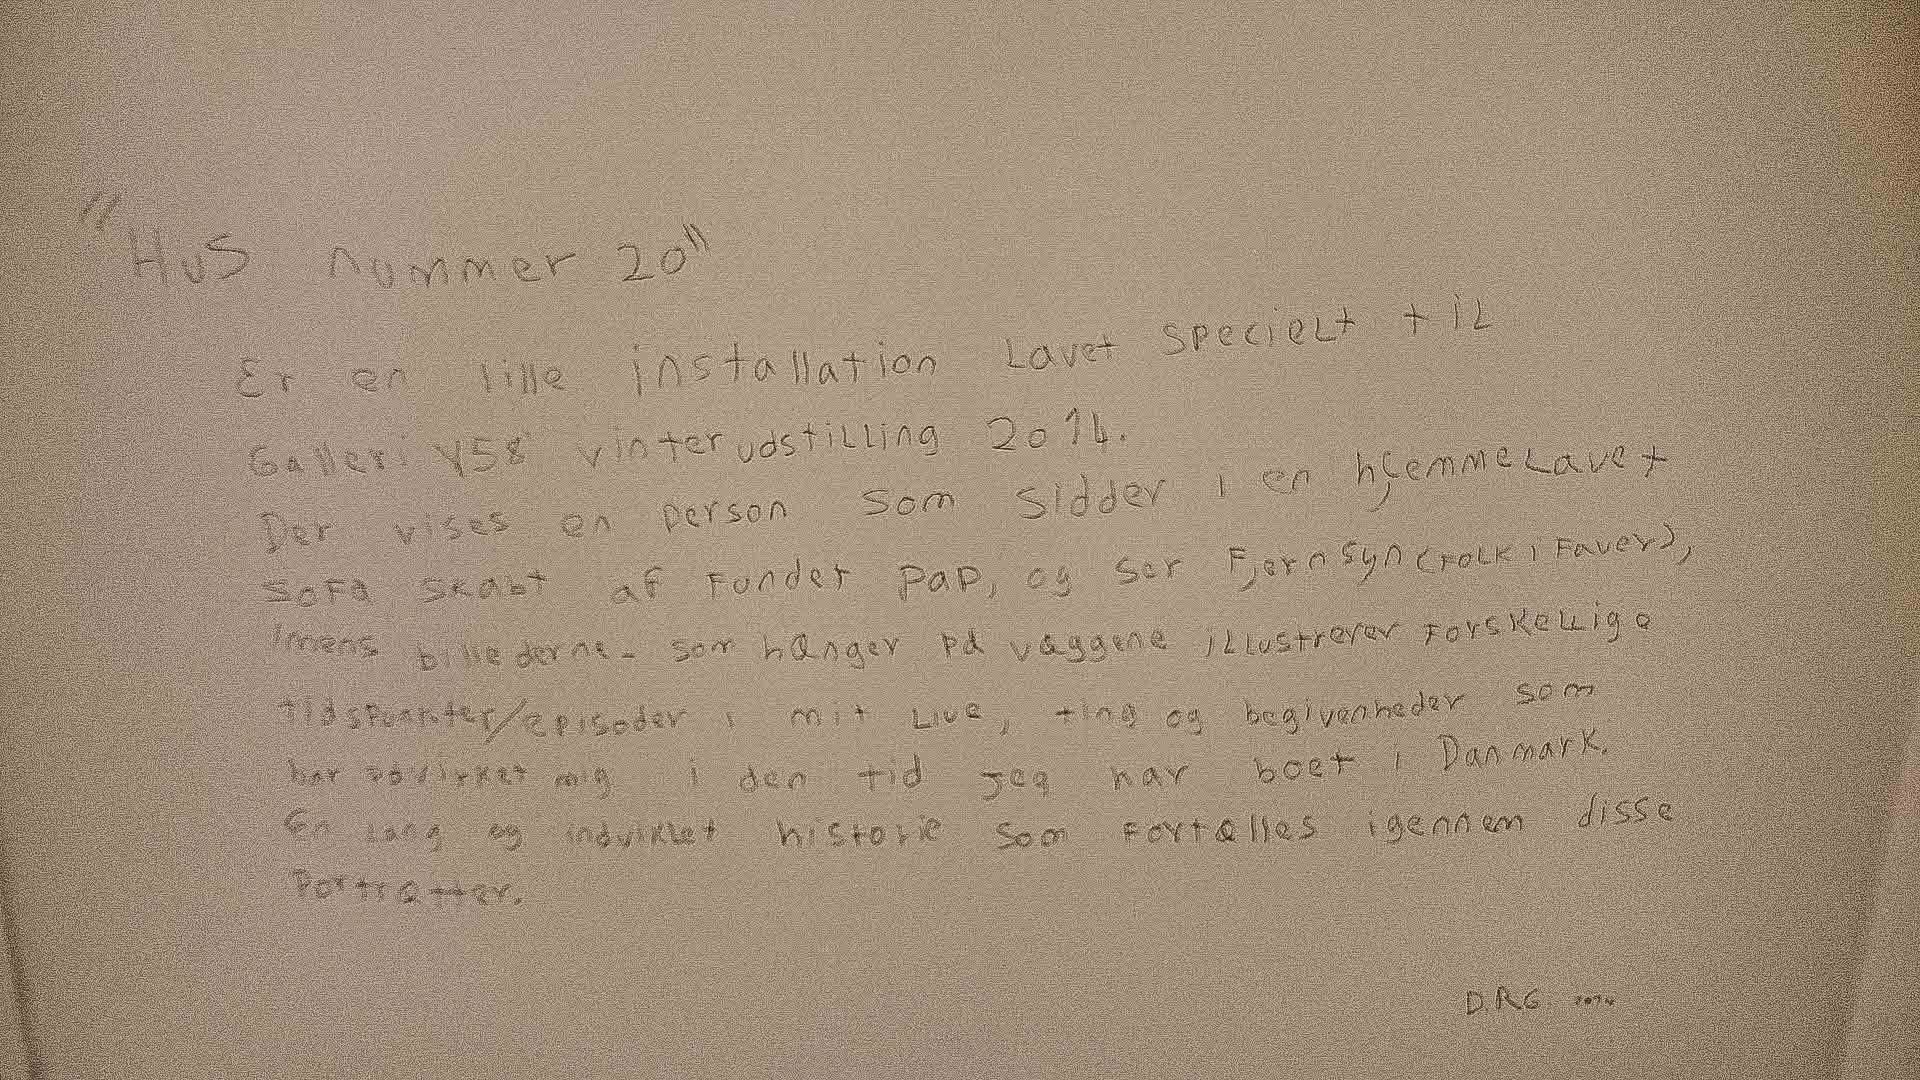 "Hus nummer 20"
Er en lille installation Lavet specielt til
Galleri Y58 vinterudstilling 2014.
Der vises en person som sidder i en hjemmelavet
sofa skabt af fundet pap, og ser Fjernsyn (Folk i Faver),
imens billederne - som hænger på væggene illustrerer forskellige
tidspunkter/episoder i mit Live, ting og begivenheder som
har påvirket mig i den tid jeg har boet i Danmark.
En lang og indviklet historie som fortælles igennem disse
Portrætter.
D.R.G. 2014